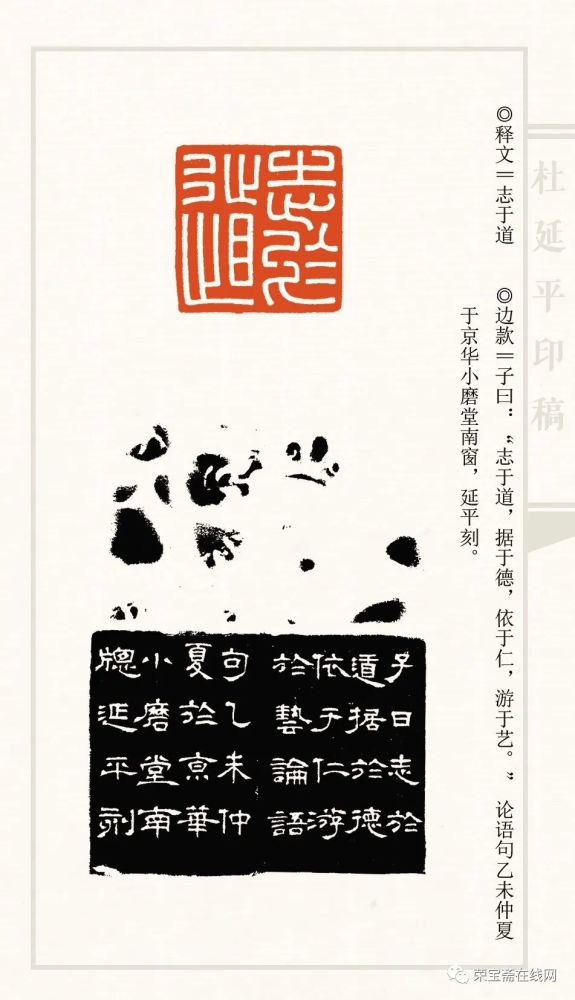 杜延平印稿
◎释文＝志于道　◎边款＝子曰：“志于道，据于德，依于仁，游于艺。”　论语句乙未仲夏
于京华小磨堂南窗，延平刻。
志於
道
子曰志於
道据於德
依于仁游
於藝論語
句乙未仲
夏於亰華
小磨堂南
牕延平刻
荣宝斋在线网